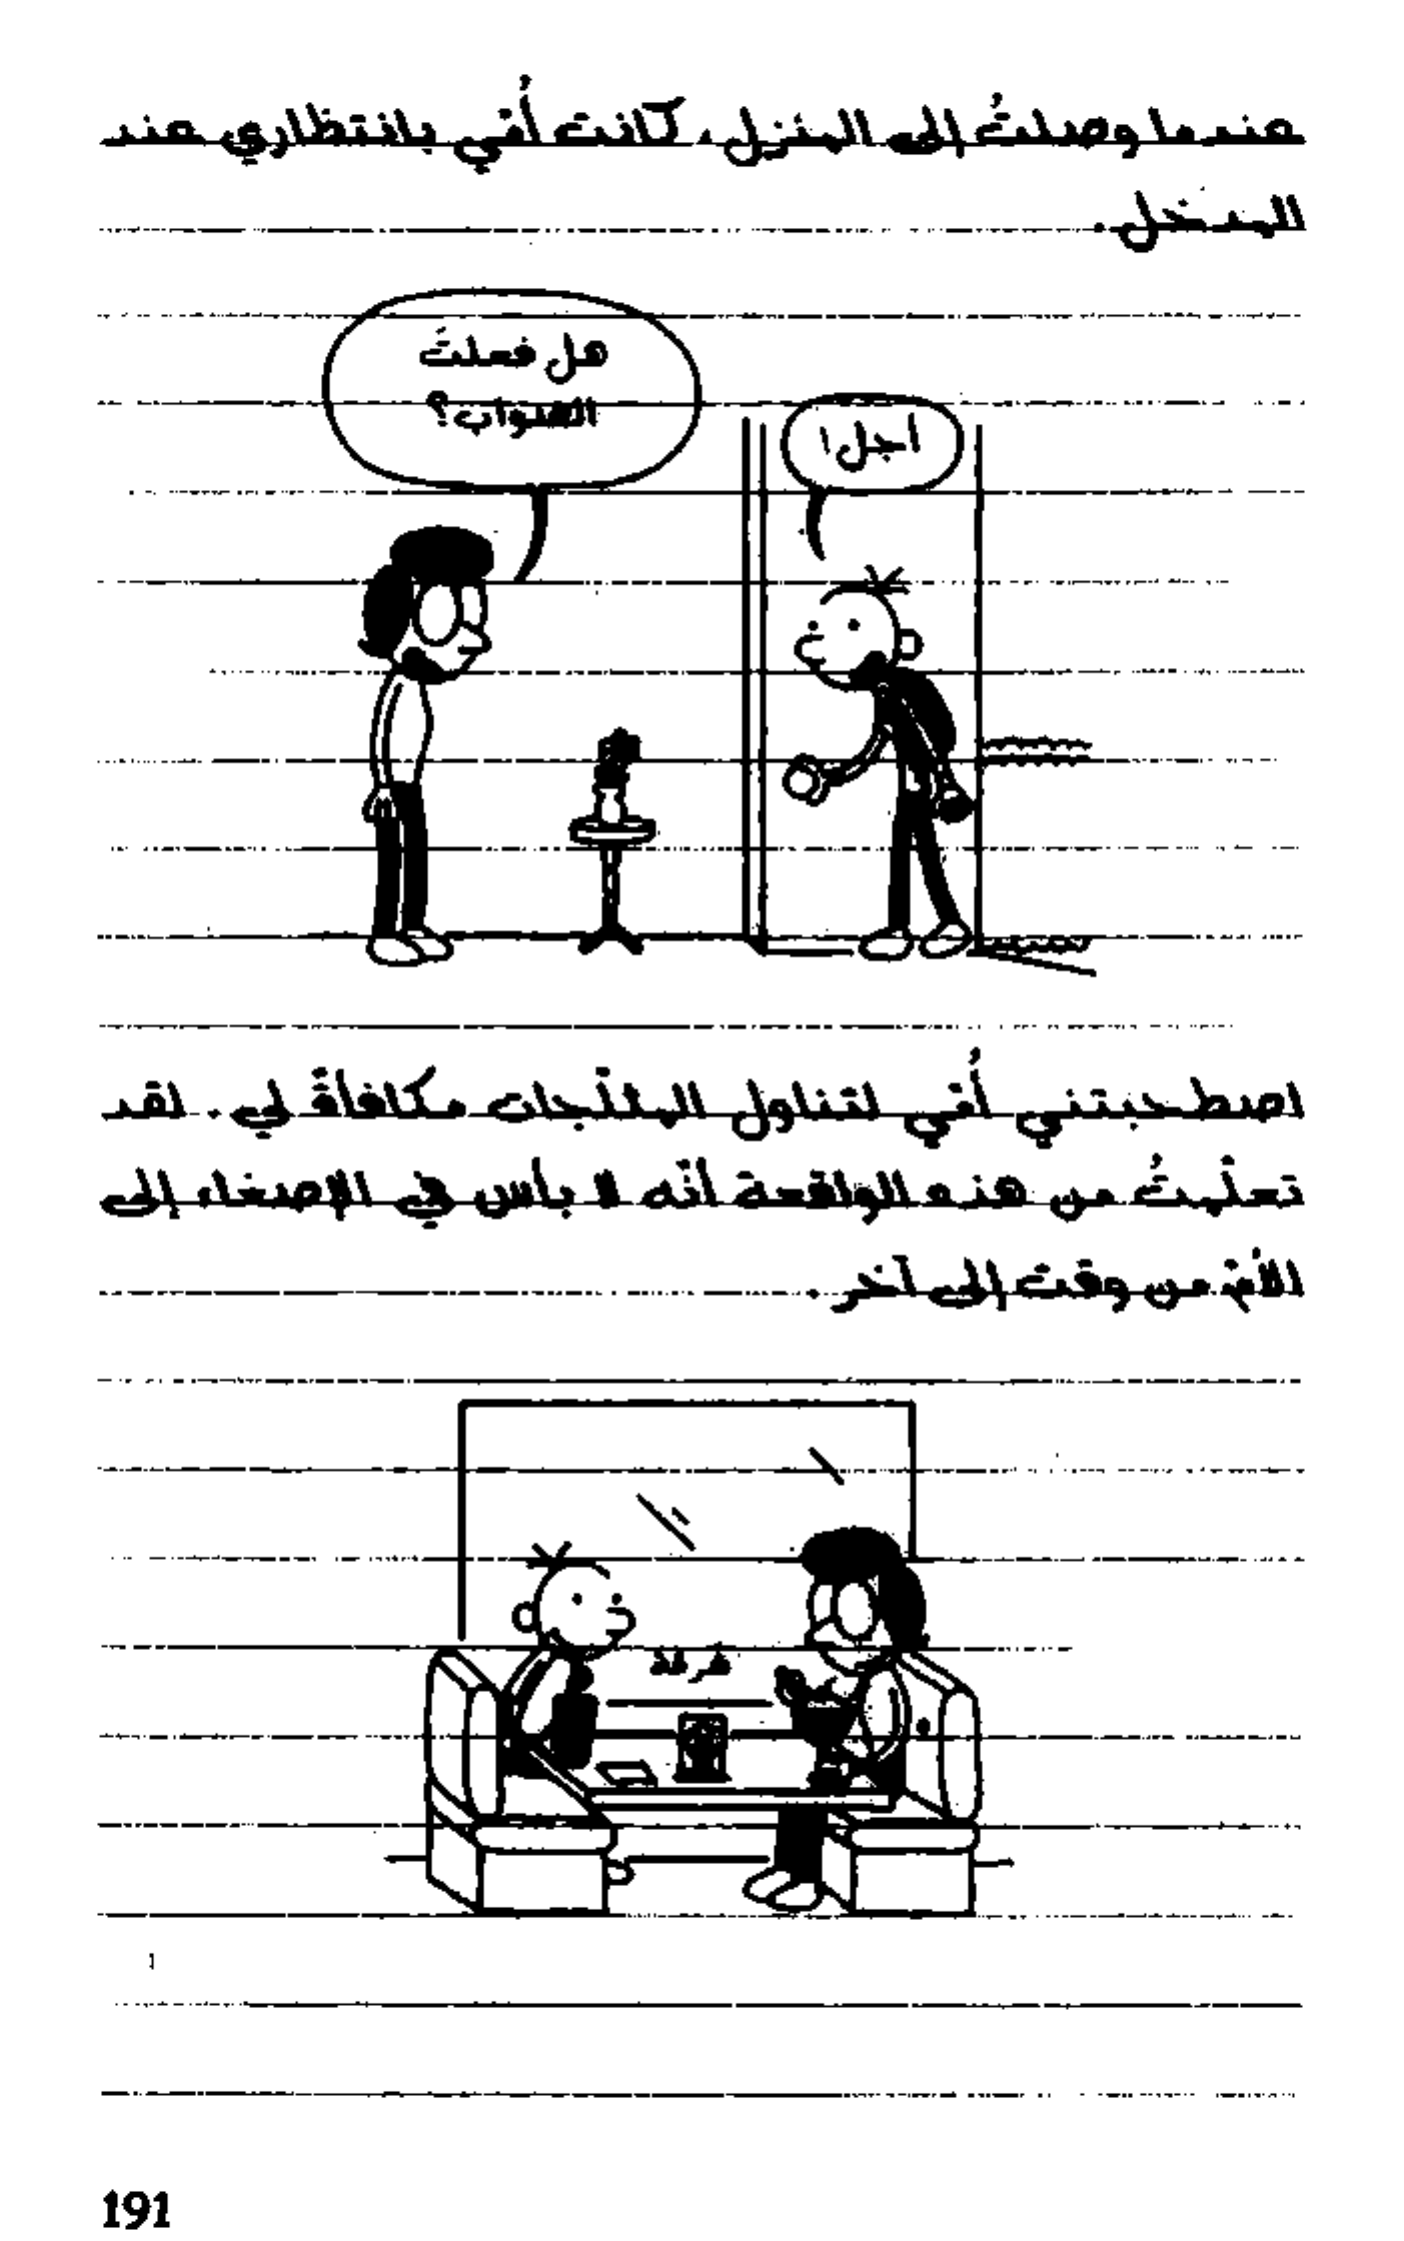 عندما وصلتُ إلى المنزل، كانت أُمّي بانتظاري عند
المدخل.
هل فعلتَ
الصواب؟
أجل!
اصطحبتني أُمّي لتناول المثلّجات مكافأةً لي. لقد
تعلّمتُ من هذه الواقعة أنّه لا بأس في الإصغاء إلى
الأمّ من وقت إلى آخر.
191